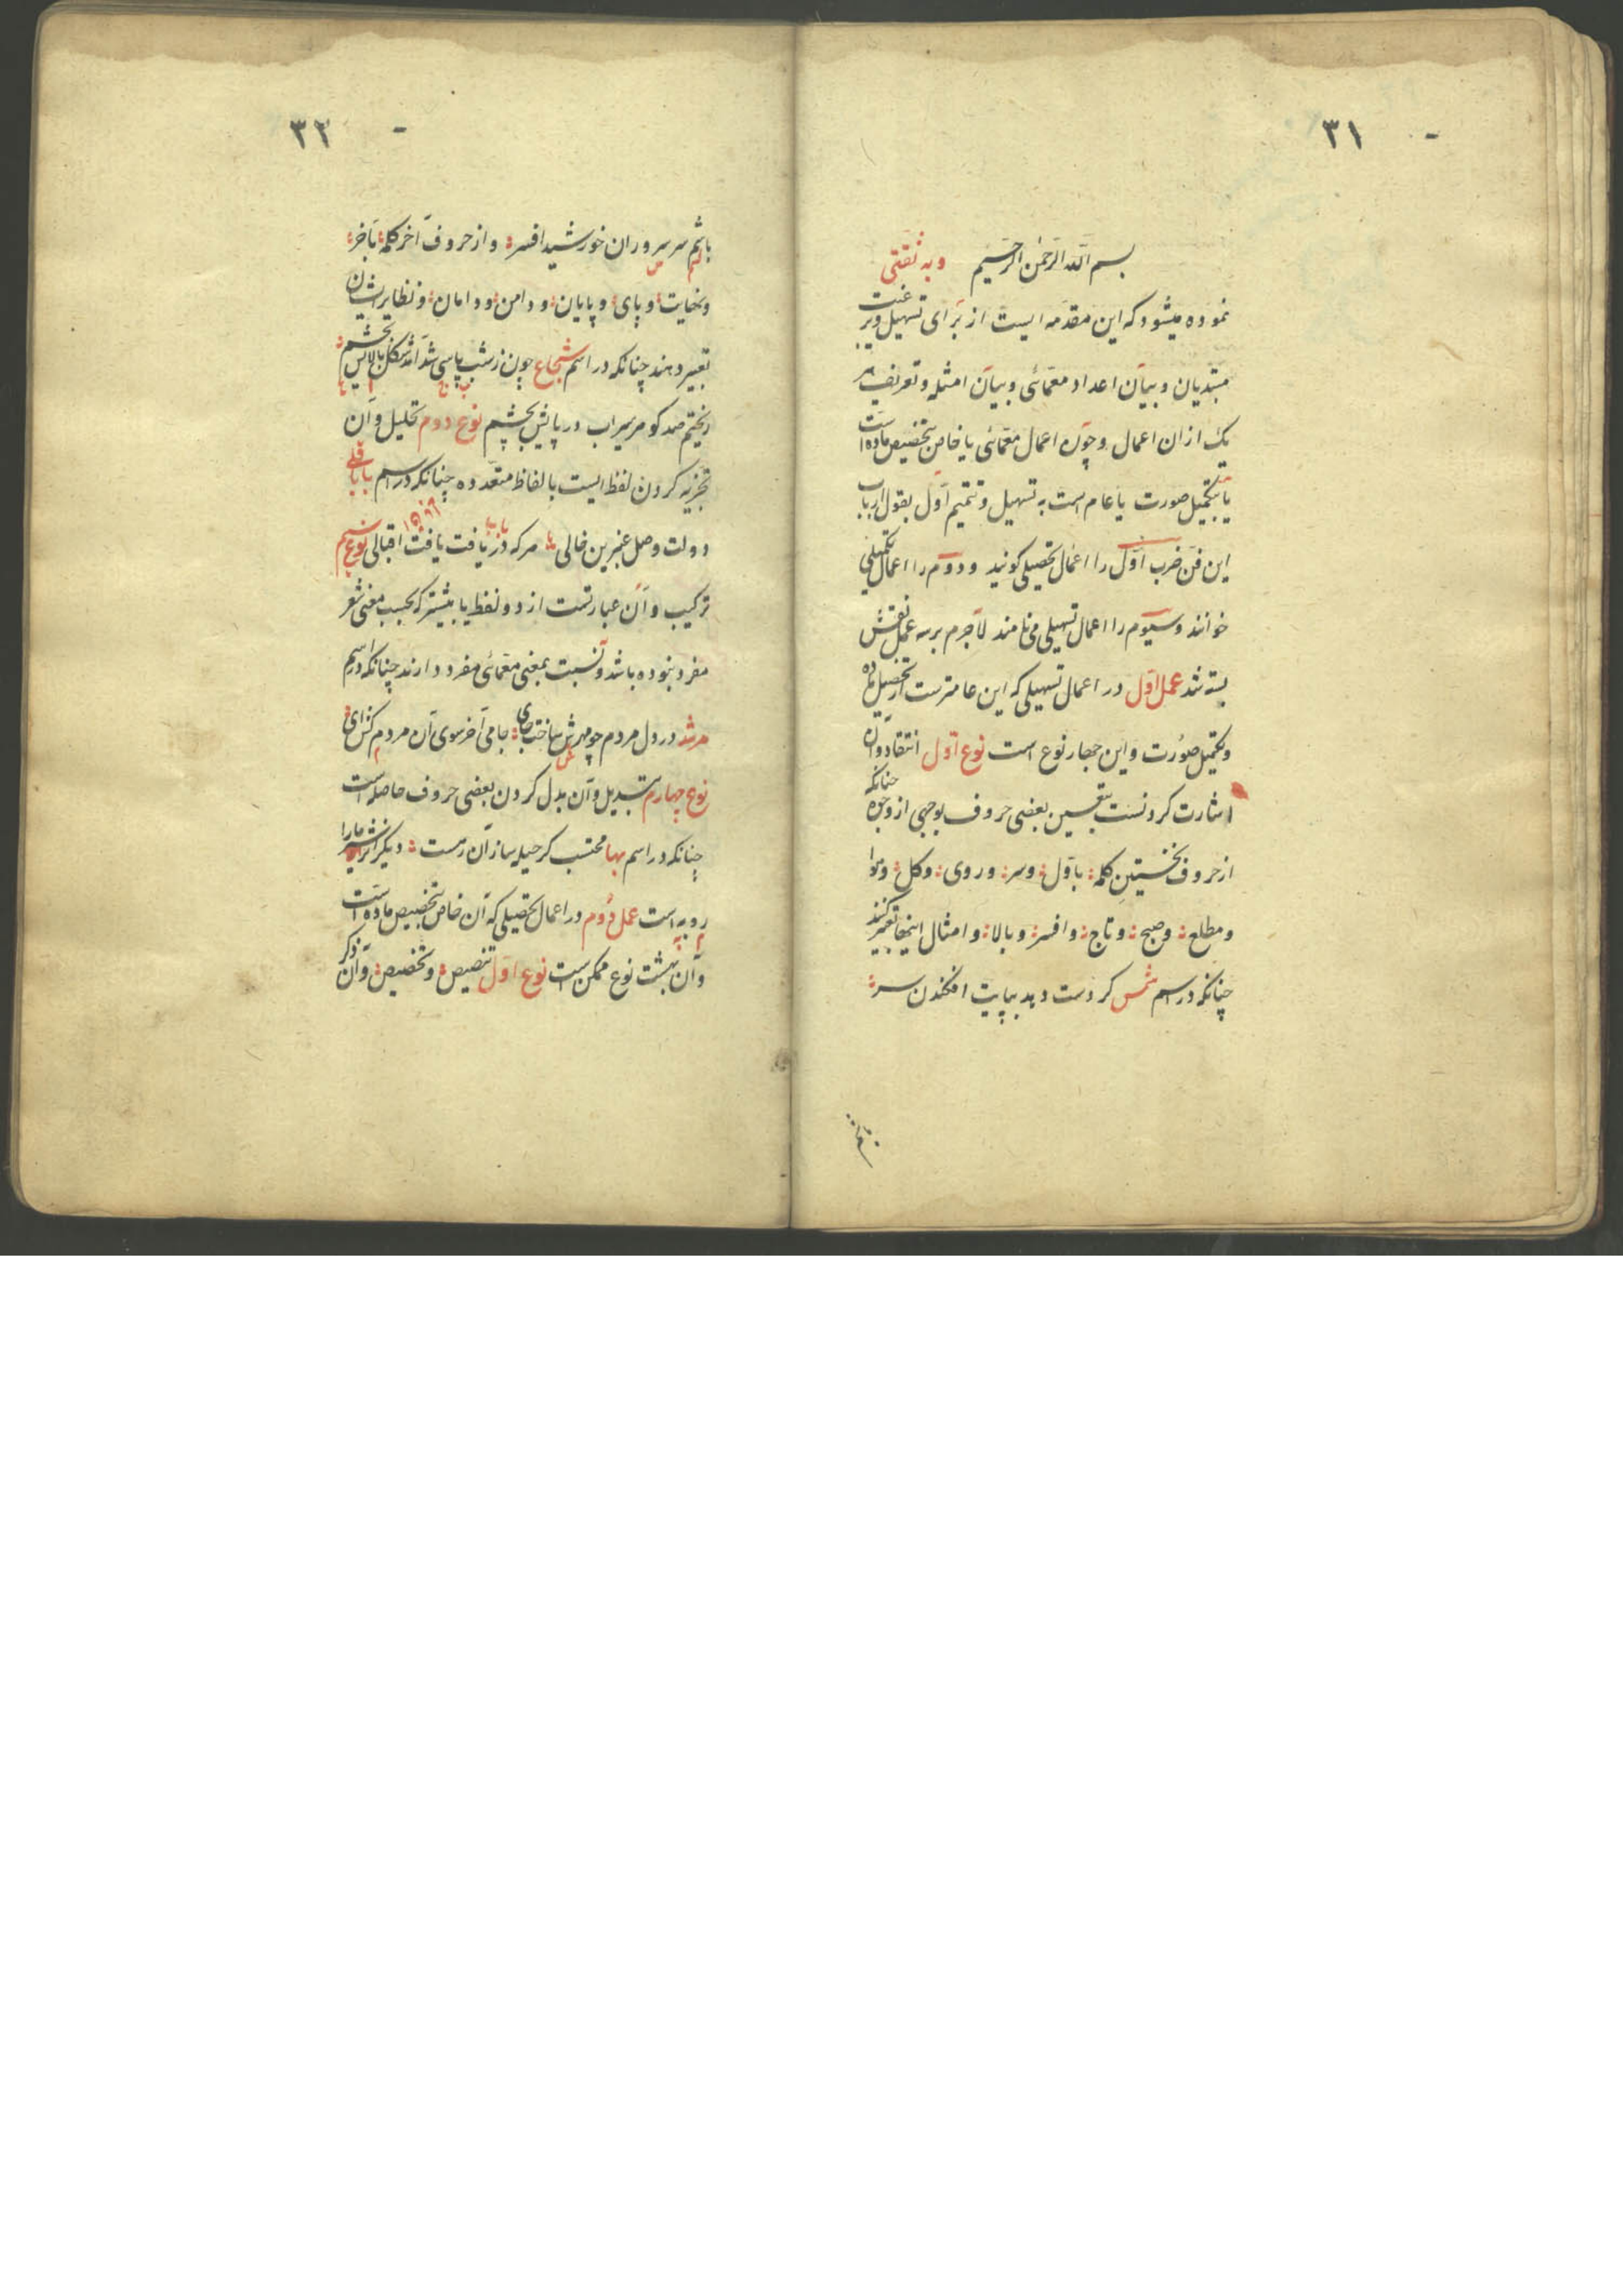 ٣١
بسم الله الرحمن الرحیم وبه ثقتی
نموده میشود که این مقدمه ایست از برای تسهیل و رغبت
مبتدیان و بیان اعداد معمائی و بیان امثله و تعریف هر
یک ازان اعمال و چون اعمال معمائی یا خاص بتحصیص ماده است
یا بتکمیل صورت یا عام است به تسهیل و تتمیم اول بقول ارباب
این فن ضرب اول را اعمال تحصیلی کویند و دوم را اعمال تکمیلی
خوانند و سیوم را اعمال تسهیلی می نامند لاجرم بر سه عمل نقش
بسته شد عمل اول در اعمال تسهیلی که این عامترست از تحصیل ماده
و تکمیل صورت و این چهار نوع است نوع اول انتقاد و آن
اشارت کردنست بتعیین بعضی حروف بوجهی از وجوه چنانکه
از حروف نخستین کلمه باول وسر و روی وکل
ومطلع وصبح وتاج وافسر وبالا وامثال اینها تعبیر کنند
چنانکه در اسم شمس کر دست دهد بپایت افکندن سر
٣٢
باشم سر سروران خورشید افسر و از حروف آخر کلمه بآخر
ونهایت وپای وپایان ودامن ودامان ونظایر ایشان
تعبیر دهند چنانکه در اسم شجاع چون ز شب پاسی شد آمد شکل بالایش بچشم
ریختم صد کوهر سیراب در پایش بچشم نوع دوم تحلیل و آن
تجزیه کردن لفظ ایست بالفاظ متعدده چنانکه در اسم بابا قلی
دولت وصل عنبرین خالی هر که دریافت یافت اقبالی نوع سیم
ترکیب و آن عبارتست از دو لفظ یا بیشتر که بحسب معنی شعر
مفرد نبوده باشد و نسبت بمعنی معمائی مفرد دارند چنانکه در اسم
مرشد در دل مردم چو مهرش ساخت جای جامی آخر سوی آن مردم کرای
نوع چهارم تبدیل و آن بدل کردن بعضی حروف حاصله است
چنانکه در اسم بها محتسب کر حیله ساز آن رست دیکر
روبه است عمل دوم در اعمال تحصیلی که آن خاص بتحصیص ماده است
و آن بهشت نوع ممکن است نوع اول تنصیص وتخصیص و آن ذکر